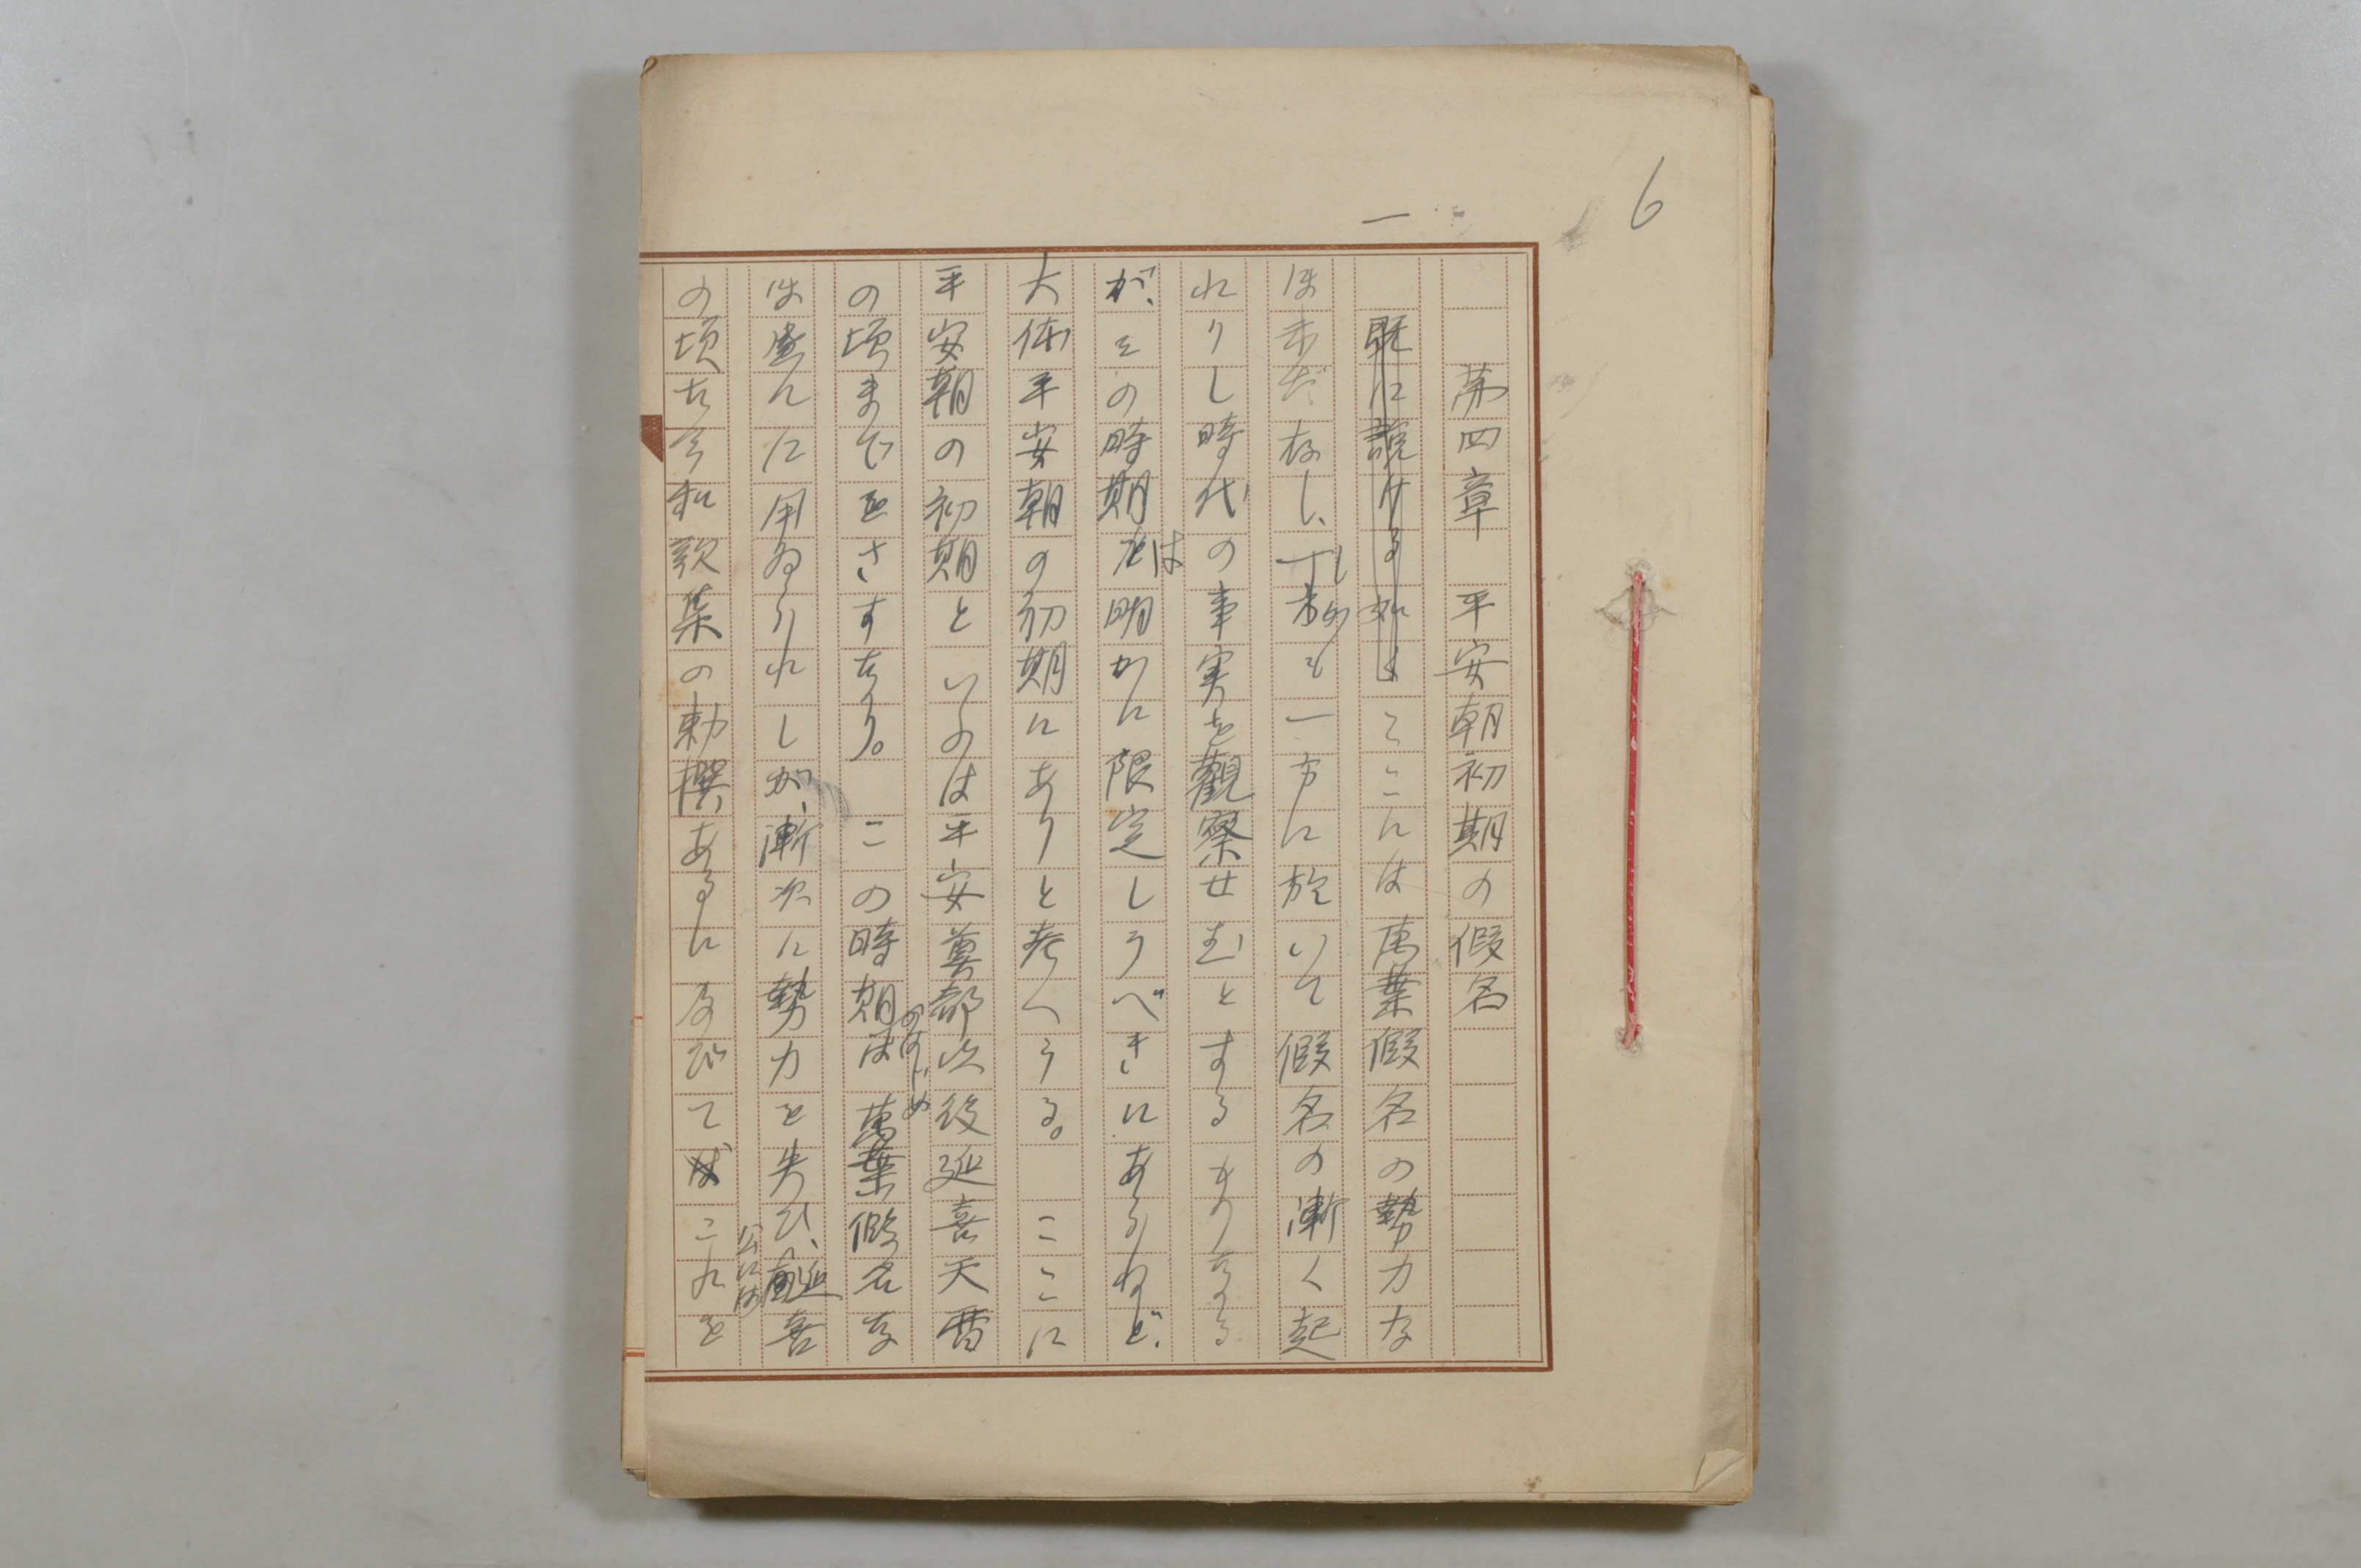 6
一
第四章　平安朝初期の假名
既に説ける如くここには萬葉假名の勢力な
ほ未だ存し、しかも一方に於いて假名の漸く起
れりし時代の事実を觀察せむとするものなる
が、その時期は明かに限定しうべきにあらねど、
大体平安朝の初期にありと考へうる。　ここに
平安朝の初期といふは平安奠都以後延喜天暦
の頃までをさすなり。　この時期のはじめは萬葉假名な
ほ盛んに用ゐられしが、漸次に勢力を失ひ、延喜
の頃古今和歌集の勅撰あるに及びて公にはこれを